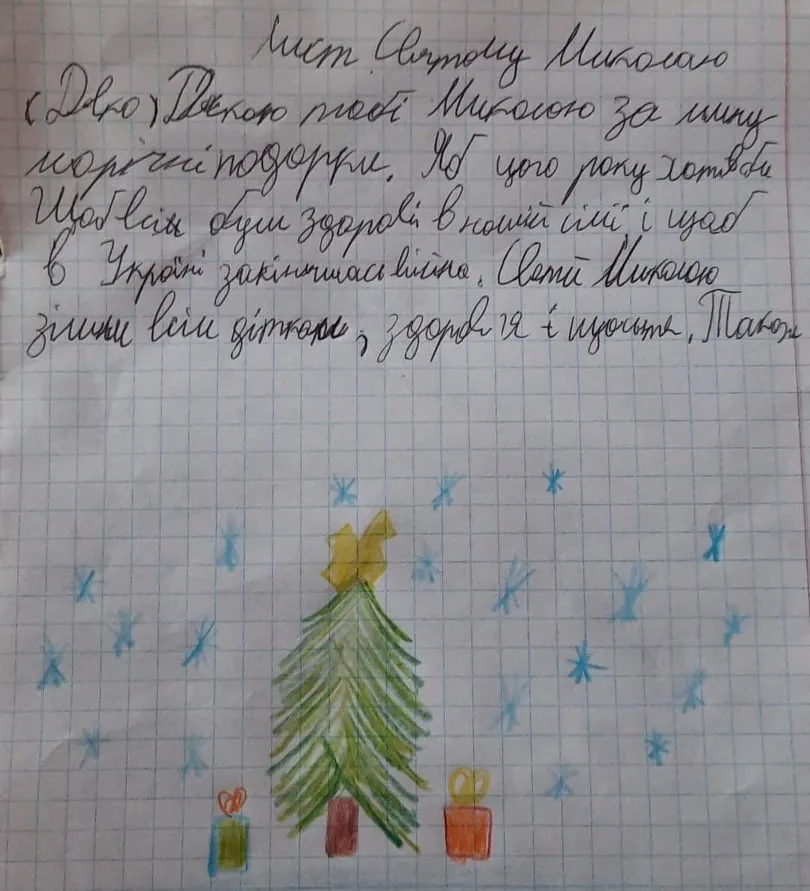 Лист Святому Миколаю
(Дякую) Дякую тобі Миколаю за мину
лорічні подарки. Яб цього року хотівби
Щоб всі були здорові в нашій сімї і щоб
в Україні закінчилась війна. Святий Миколаю
зішли всім діткам, здоров'я і щастя. Також